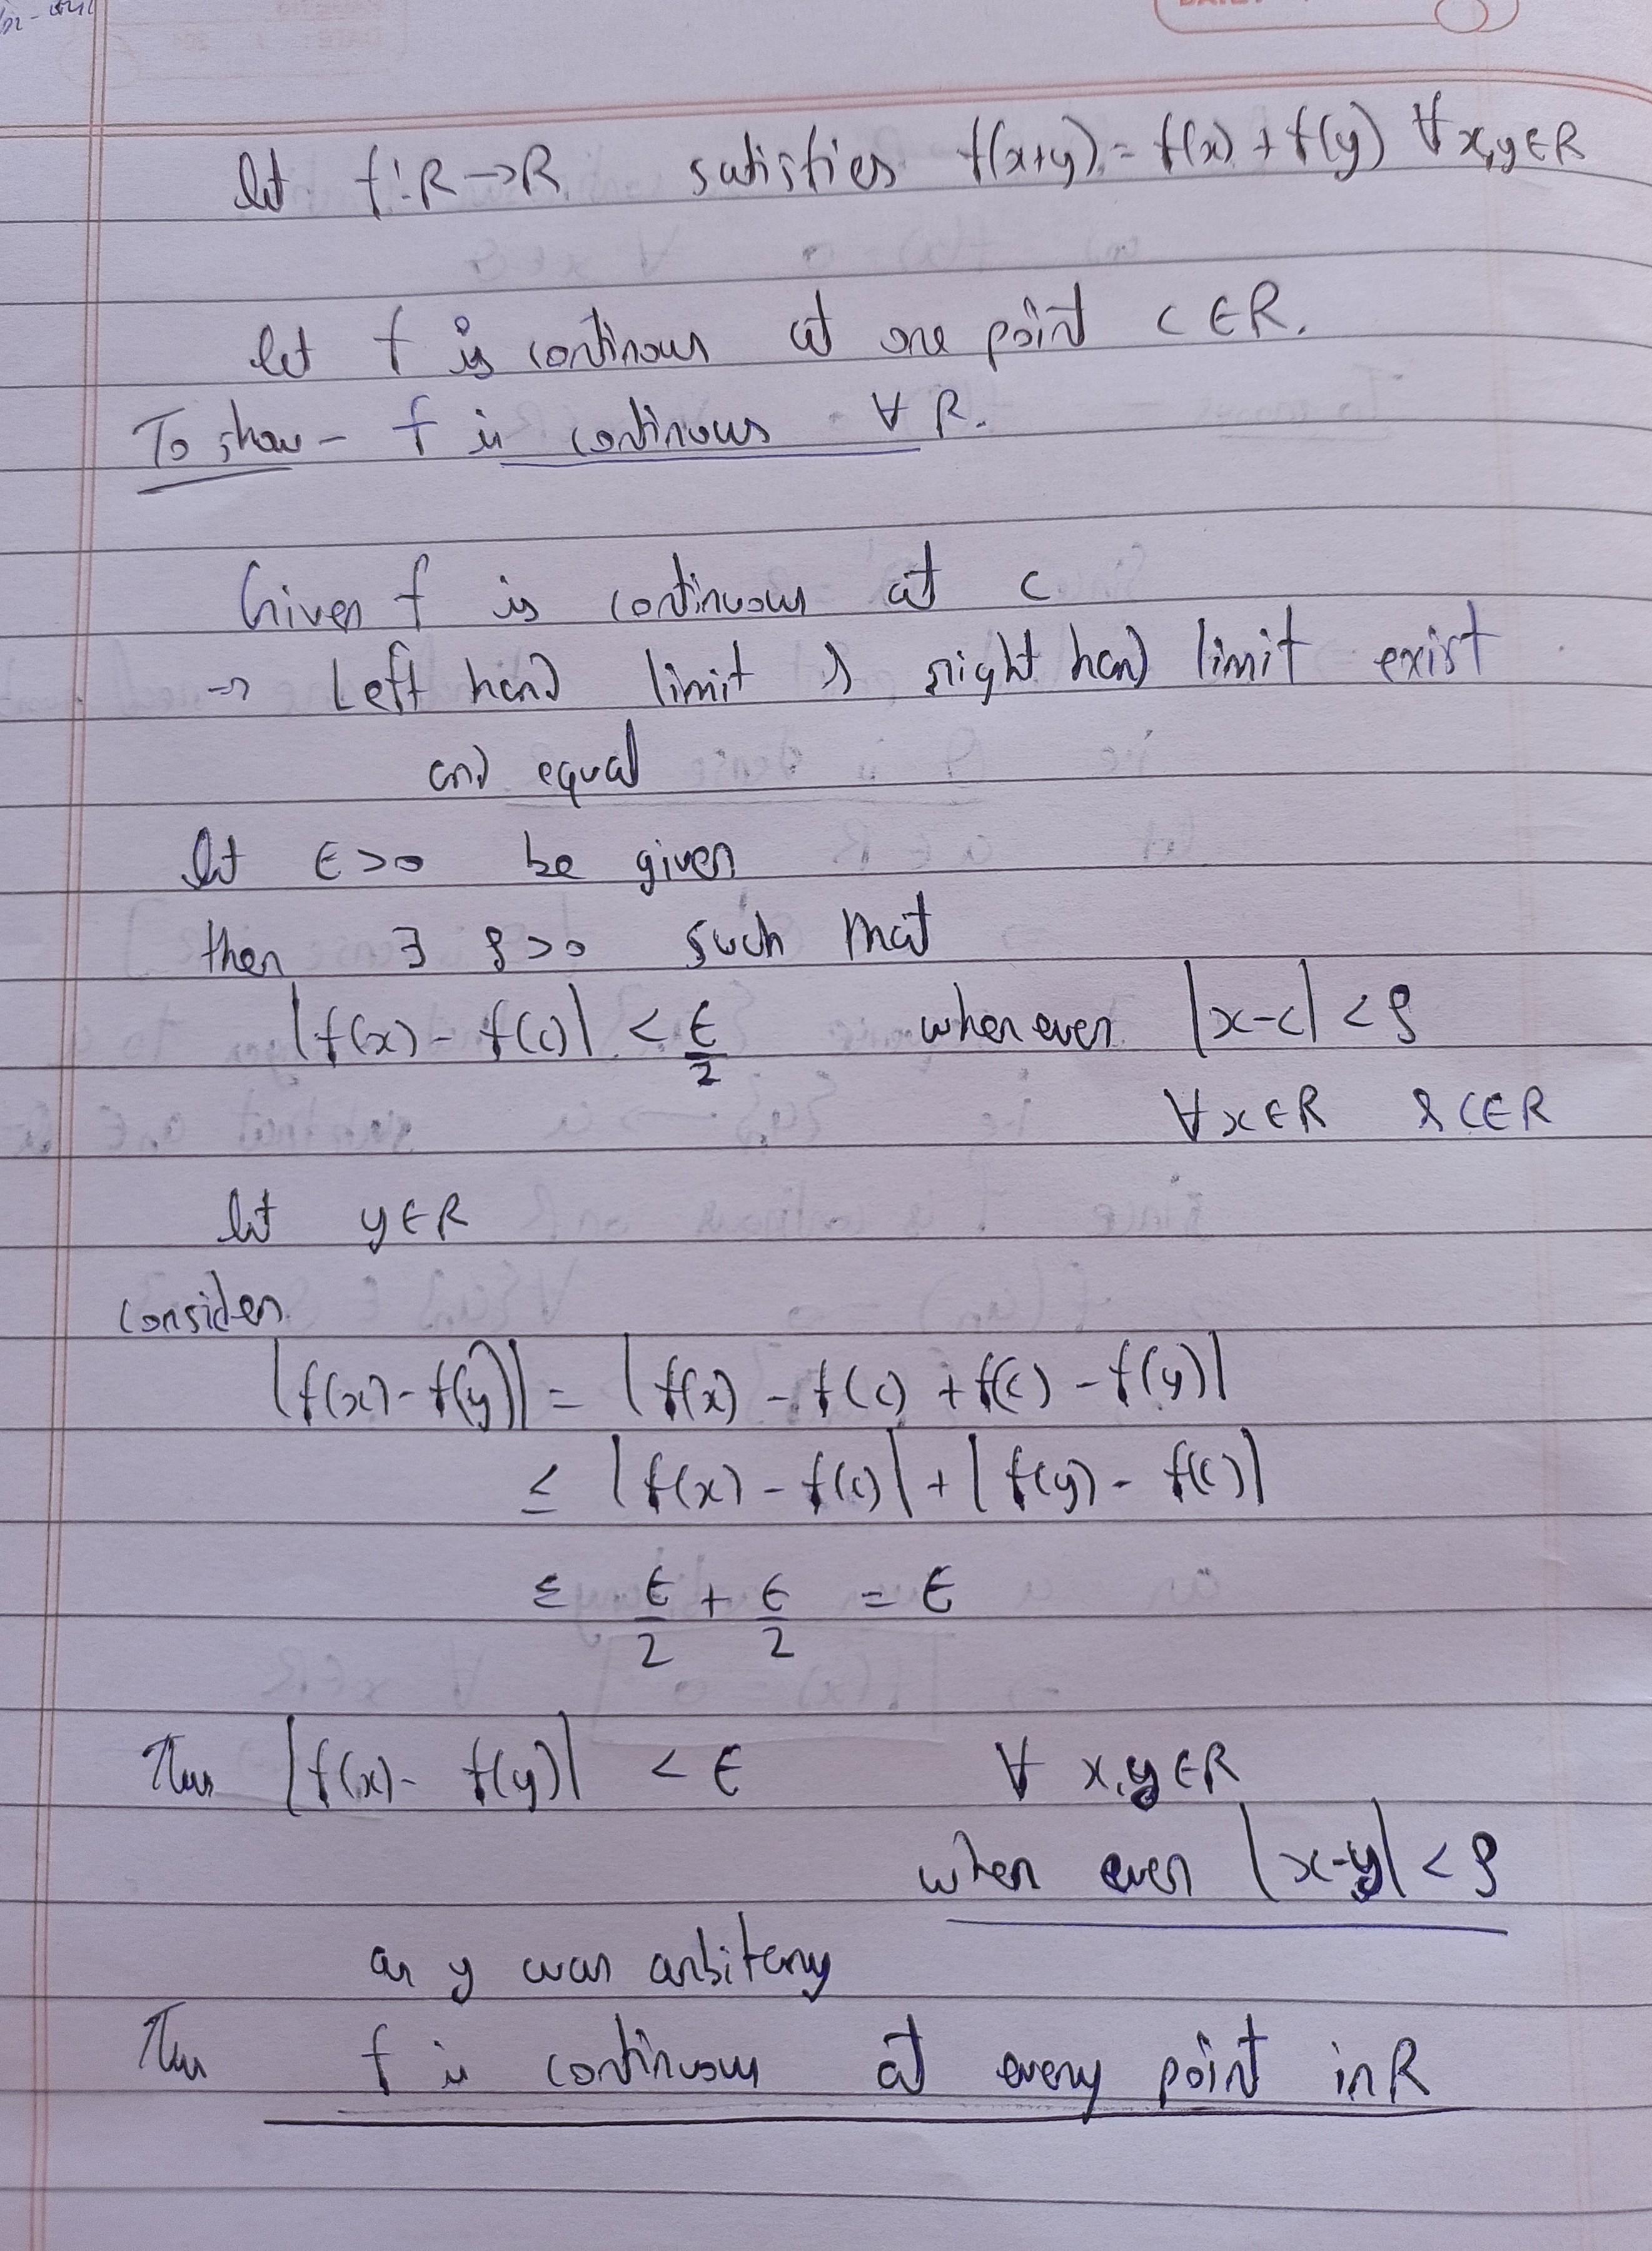 let f: R→R satisfies f(x+y) = f(x) + f(y) ∀ x,y ∈ R
let f is continous at one point c ∈ R.
To show - f is continous ∀ R.
Given f is continuous at c
→ Left hand limit & right hand limit exist
and equal
let ϵ>0 be given
then ∃ δ>0 such that
|f(x) - f(c)| < ϵ/2 whenever |x-c| < δ
∀ x∈R & c∈R
let y∈R
consider
|f(x) - f(y)| = |f(x) - f(c) + f(c) - f(y)|
≤ |f(x) - f(c)| + |f(y) - f(c)|
≤ ϵ/2 + ϵ/2 = ϵ
Thus |f(x) - f(y)| < ϵ ∀ x,y ∈R
when ever |x-y| < δ
as y was arbitary
Thus f is continuous at every point in R